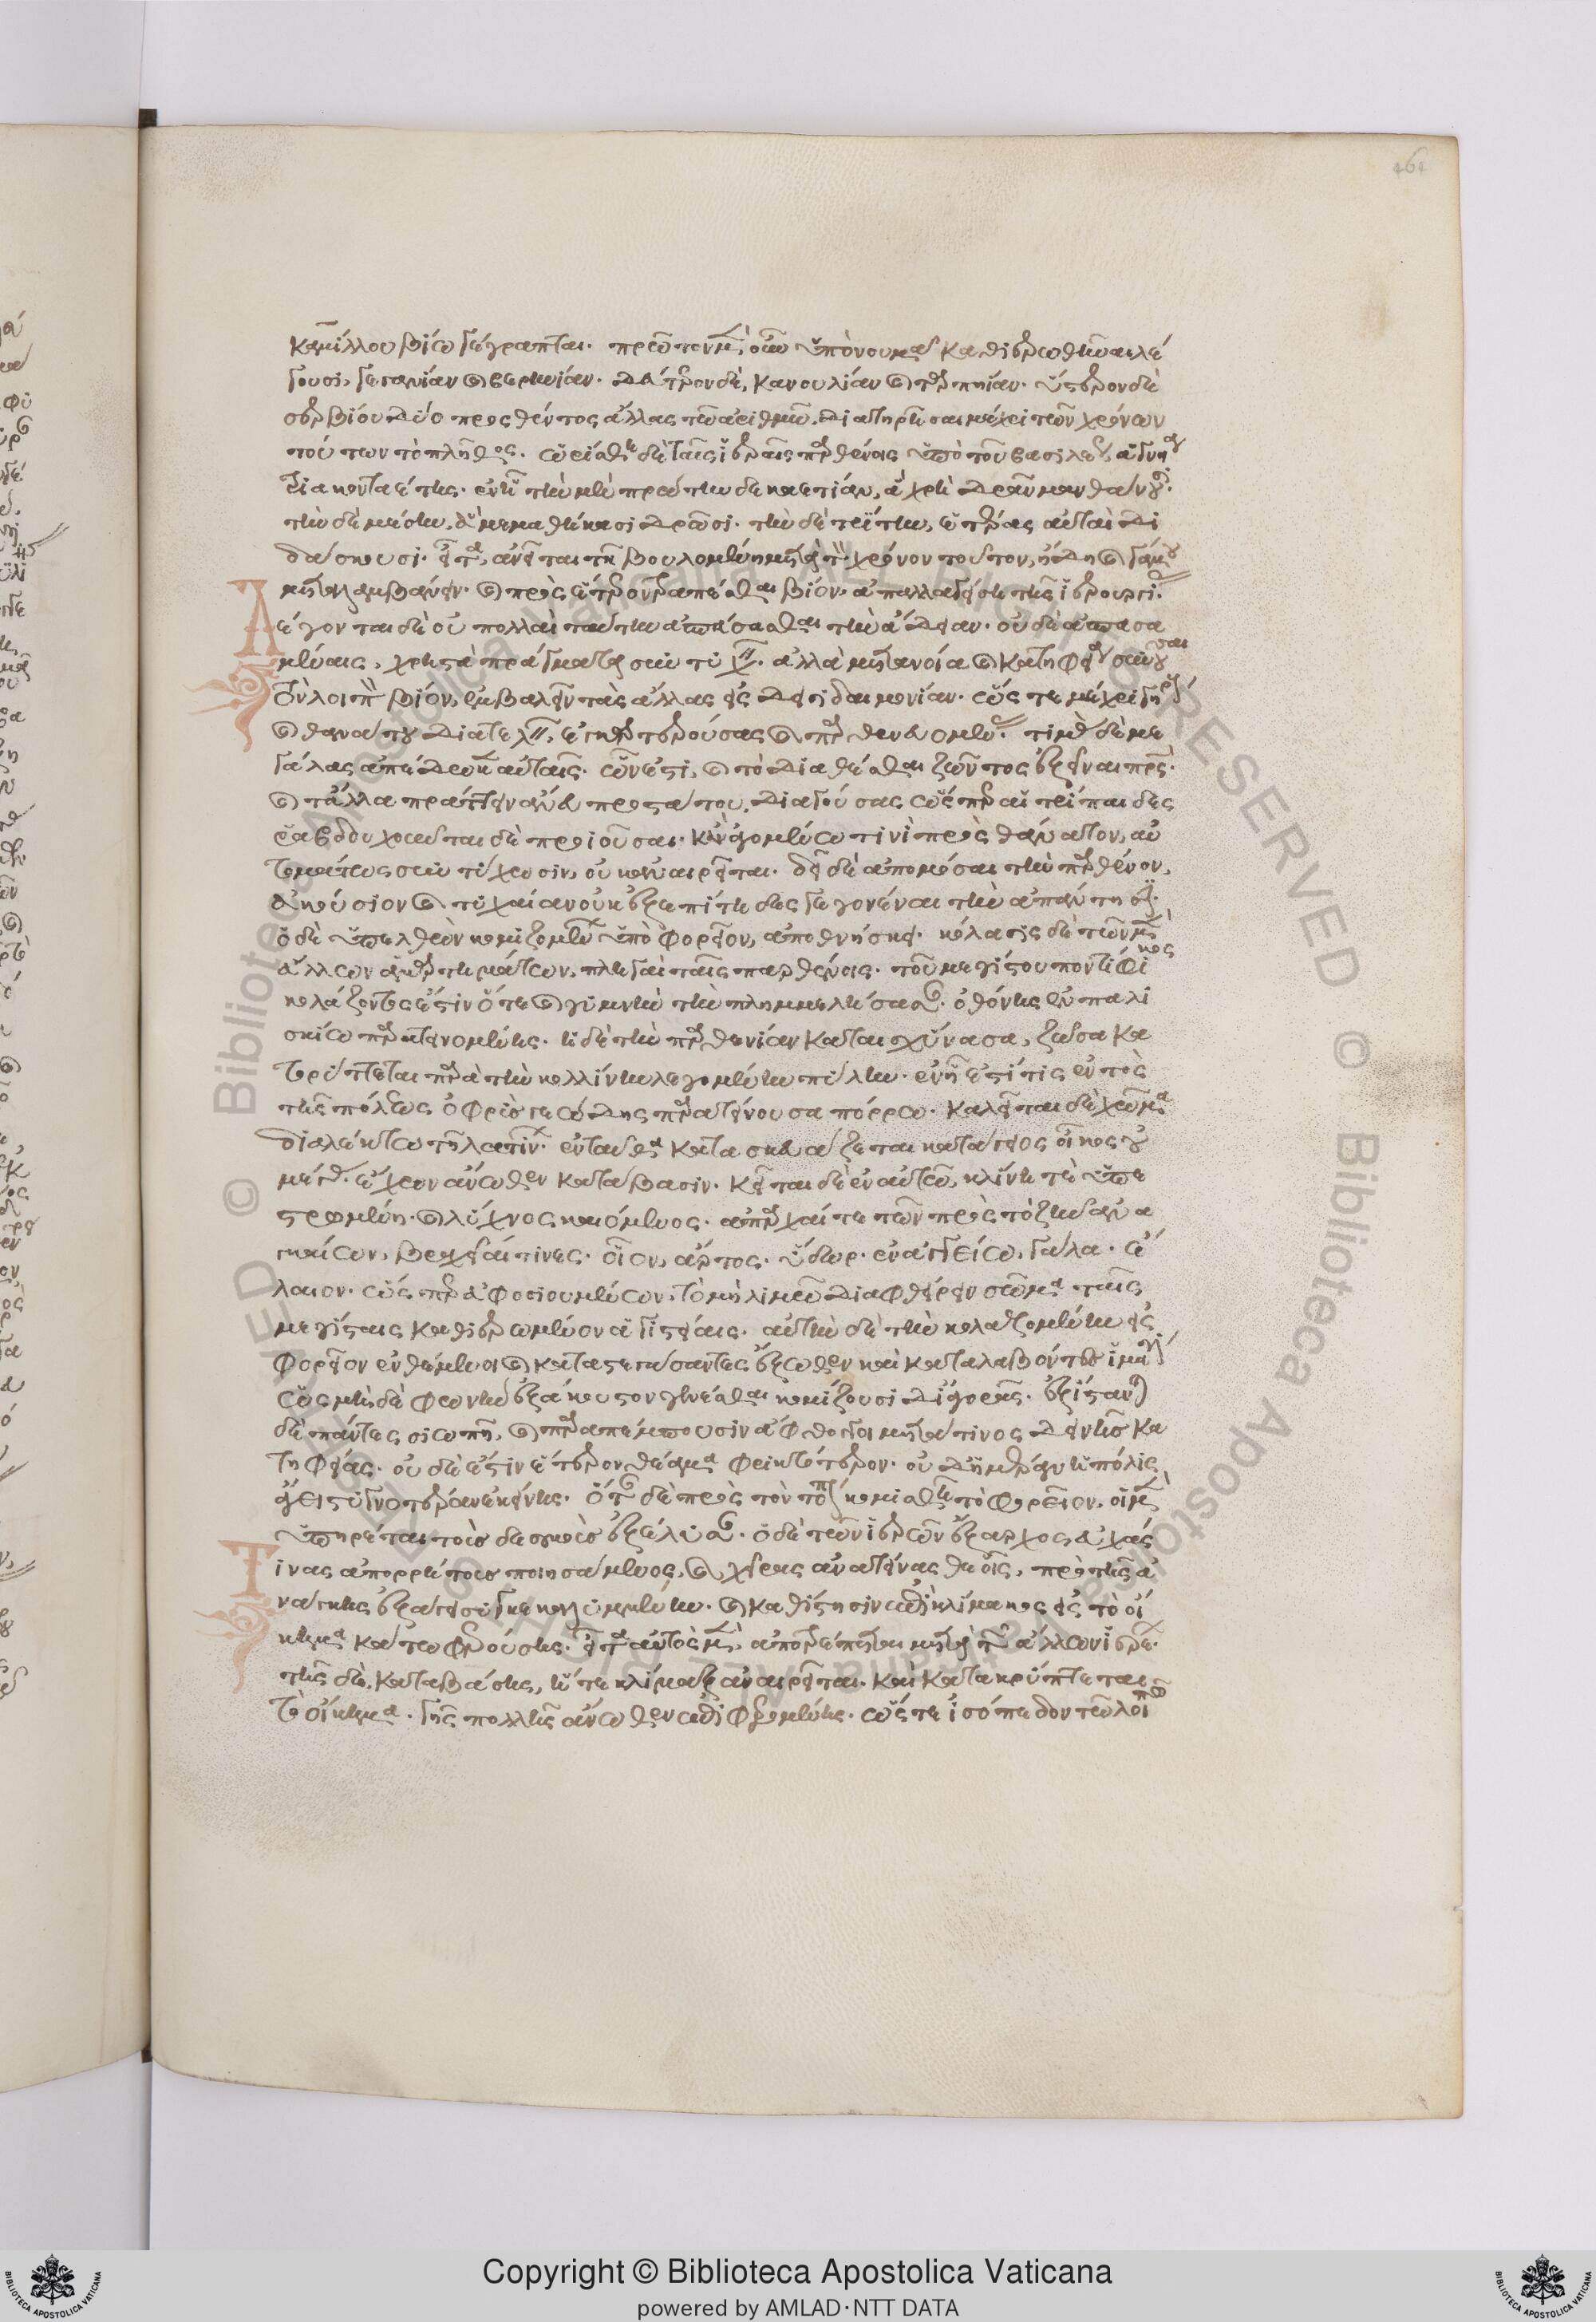 464
Καμίλλου βίω γέγραπται. πρῶτον μὲν οὖν ὑπὸ νουμᾶ καθιερωθῆναι λέ
γουσι, γεγανίαν καὶ βερηνίαν. δεύτερον δὲ, κανουλίαν καὶ ταρπηίαν. ὕστερον δὲ
σερβίου δύο προσθέντος ἄλλας τῶ ἀριθμῶ. διατηρῆσαι μέχρι τῶν χρόνων
τούτων τὸ πλῆθος. ὡρίσθη δὲ ταῖς ἱεραῖς παρθένοις ὑπὸ τοῦ βασιλέως ἁγνεία
τριακονταέτης. ἐν ἧ τὴν μὲν πρώτην δεκαετίαν, ἃ χρὴ δρᾶν μανθάνουσι.
τὴν δὲ μέσην, ἃ μεμαθήκασι δρῶσι. τὴν δὲ τρίτην, ἑτέρας αὐταὶ δι
δάσκουσι. εἶτα, ἀνεῖται τῆ βουλομένη μετὰ τὸν χρόνον τοῦτον, ἤδη καὶ γάμου
μεταλαμβάνειν. καὶ πρὸς ἕτερον τραπέσθαι βίον, ἀπαλλαγείση τῆς ἱερουργίας.
Λέγονται δὲ οὐ πολλαὶ ταύτην ἀσπάσασθαι τὴν ἄδειαν. οὐδὲ ἀσπασα
μέναις, χρηστὰ πράγματα συντυχεῖν. ἀλλὰ μετανοία καὶ κατηφεία συνούσαι
τὸν λοιπὸν βίον, ἐμβαλεῖν τὰς ἄλλας εἰς δεισιδαιμονίαν. ὥστε μέχρι γήρως
καὶ θανάτου διατελεῖν ἐγκαρτερούσας καὶ παρθενευομένας. τιμὰς δὲ με
γάλας ἀπέδωκεν αὐταῖς. ὧν ἔστι, καὶ τὸ διαθέσθαι ζῶντος ἐξεῖναι πατρὸς.
καὶ τἄλλα πράττειν ἄνευ προστάτου, διαγούσας ὥσπερ αἱ τρίπαιδες
ῥαβδουχοῦνται δὲ προϊοῦσαι. κἂν ἀγομένω τινὶ πρὸς θάνατον, αὐ
τομάτως συντύχωσιν, οὐκ ἀναιρεῖται. δεῖ δὲ ἀπομόσαι τὴν παρθένον,
ἀκούσιον καὶ τυχαίαν οὐκ ἐξεπίτηδες γεγονέναι τὴν ἀπάντησιν.
ὁ δὲ ὑπελθὼν κομιζομένων ὑπὸ φορεῖον, ἀποθνήσκει. κόλασις δὲ τῶν μὲν
ἄλλων ἁμαρτημάτων, πληγαὶ ταῖς παρθένοις. τοῦ μεγίστου ποντίφικος
κολάζοντος ἔστιν ὅτε καὶ γυμνὴν τὴν πλημμελήσασαν. ὀθόνης ἐν παλι
σκίω παρατεινομένης. ἡ δὲ τὴν παρθενίαν καταισχύνασα, ζῶσα κα
τορύττεται παρὰ τὴν κολλίνην λεγομένην πύλην. ἐν ἧ ἔστί τις ἐντὸς
τῆς πόλεως ὀφρὺς γεώδης παρατείνουσα πόρρω. καλεῖται δὲ χῶμα
διαλέκτω τῆ λατίνων. ἐνταῦθα κατασκευάζεται κατάγειος οἶκος οὐ
μέγας. ἔχων ἄνωθεν κατάβασιν. κεῖται δὲ ἐν αὐτῶ, κλίνη τὲ ὑπε
στρωμένη. καὶ λύχνος καιόμενος. ἀπαρχαί τε τῶν πρὸς τὸ ζῆν ἀνα
γκαίων, βραχεῖαί τινες. οἷον, ἄρτος. ὕδωρ. ἐν ἀγγείω, γάλα. ἔ
λαιον. ὥσπερ ἀφοσιουμένων, τὸ μὴ λιμῶ διαφθείρειν σῶμα ταῖς
μεγίσταις καθιερωμένον ἁγιστείαις. αὐτὴν δὲ τὴν κολαζομένην εἰς
φορεῖον ἐνθέμενοι καὶ καταστεγάσαντες ἔξωθεν καὶ καταλαβόντες ἱμᾶσιν
ὡς μηδὲ φωνὴν ἐξάκουστον γενέσθαι κομίζουσι δι᾽ ἀγορᾶς. ἐξίστανται
δὲ πάντες σιωπῆ, καὶ παραπέμπουσιν ἄφθογγοι μετά τινος δεινῆς κα
τηφείας. οὐδὲ ἔστιν ἕτερον θέαμα φρικτότερον. οὐδ᾽ ἡμέραν ἡ πόλις
ἄγει στυγνοτέραν ἐκείνης. ὅταν δὲ πρὸς τὸν τόπον κομισθῆ τὸ φορεῖον, οἱ μὲν
ὑπηρέται τοὺς δεσμοὺς ἐξέλυσαν. ὁ δὲ τῶν ἱερῶν ἔξαρχος εὐχάς
Τινας ἀπορρήτους ποιησάμενος, καὶ χεῖρας ἀνατείνας θεοῖς, πρὸ τῆς ἀ
νάγκης ἐξάγει συγκεκαλυμμένην. καὶ καθίστησιν ἐπὶ κλίμακος εἰς τὸ οἴ
κημα κάτω φερούσης. εἶτα αὐτὸς μὲν, ἀποτρέπεται μετὰ τῶν ἄλλων ἱερέων.
τῆς δὲ, καταβάσης, ἥ τε κλίμαξ ἀναιρεῖται. καὶ κατακρύπτεται
τὸ οἴκημα. γῆς πολλῆς ἄνωθεν ἐπιφερομένης. ὥστε ἰσόπεδον τῶ λοιπῶ
Copyright © Biblioteca Apostolica Vaticana
powered by AMLAD·NTT DATA